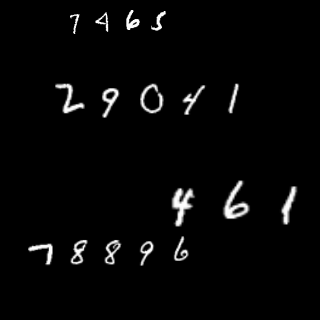 7465
29041
461
78896